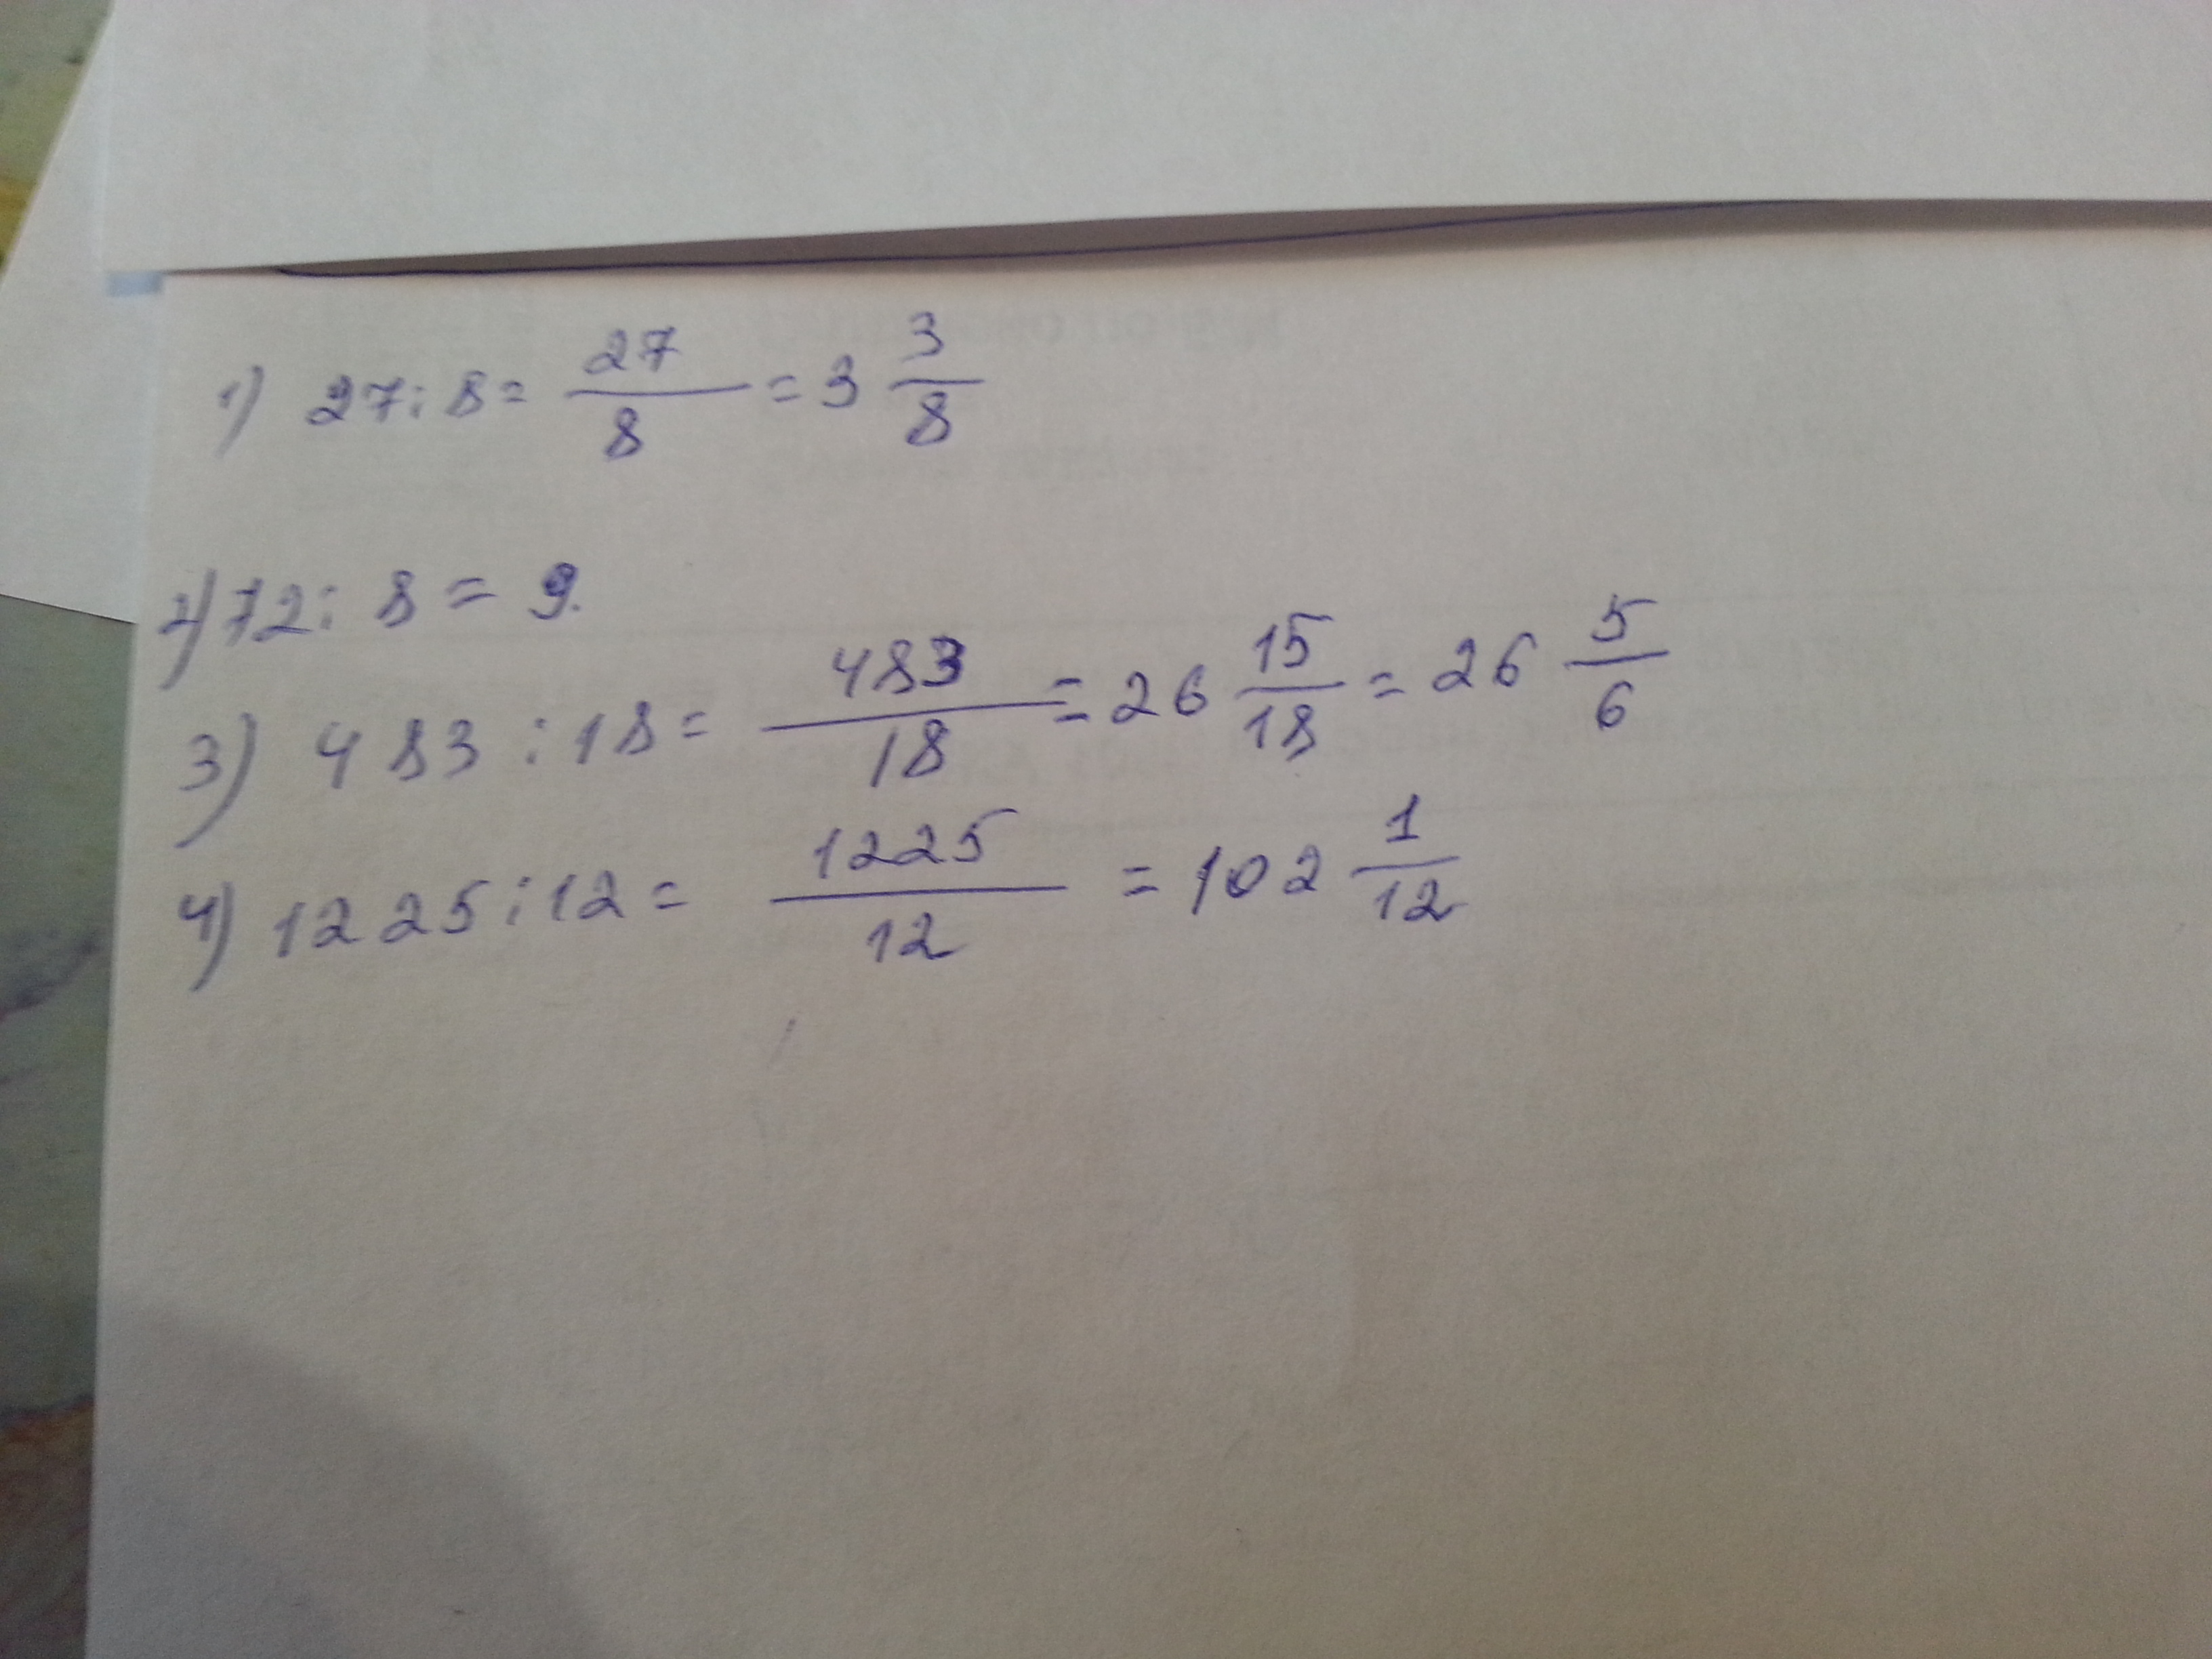 1) 27:8= 27/8 = 3 3/8
2) 72:8=9.
3) 483:18= 483/18 = 26 15/18 = 26 5/6
4) 1225:12= 1225/12 = 102 1/12